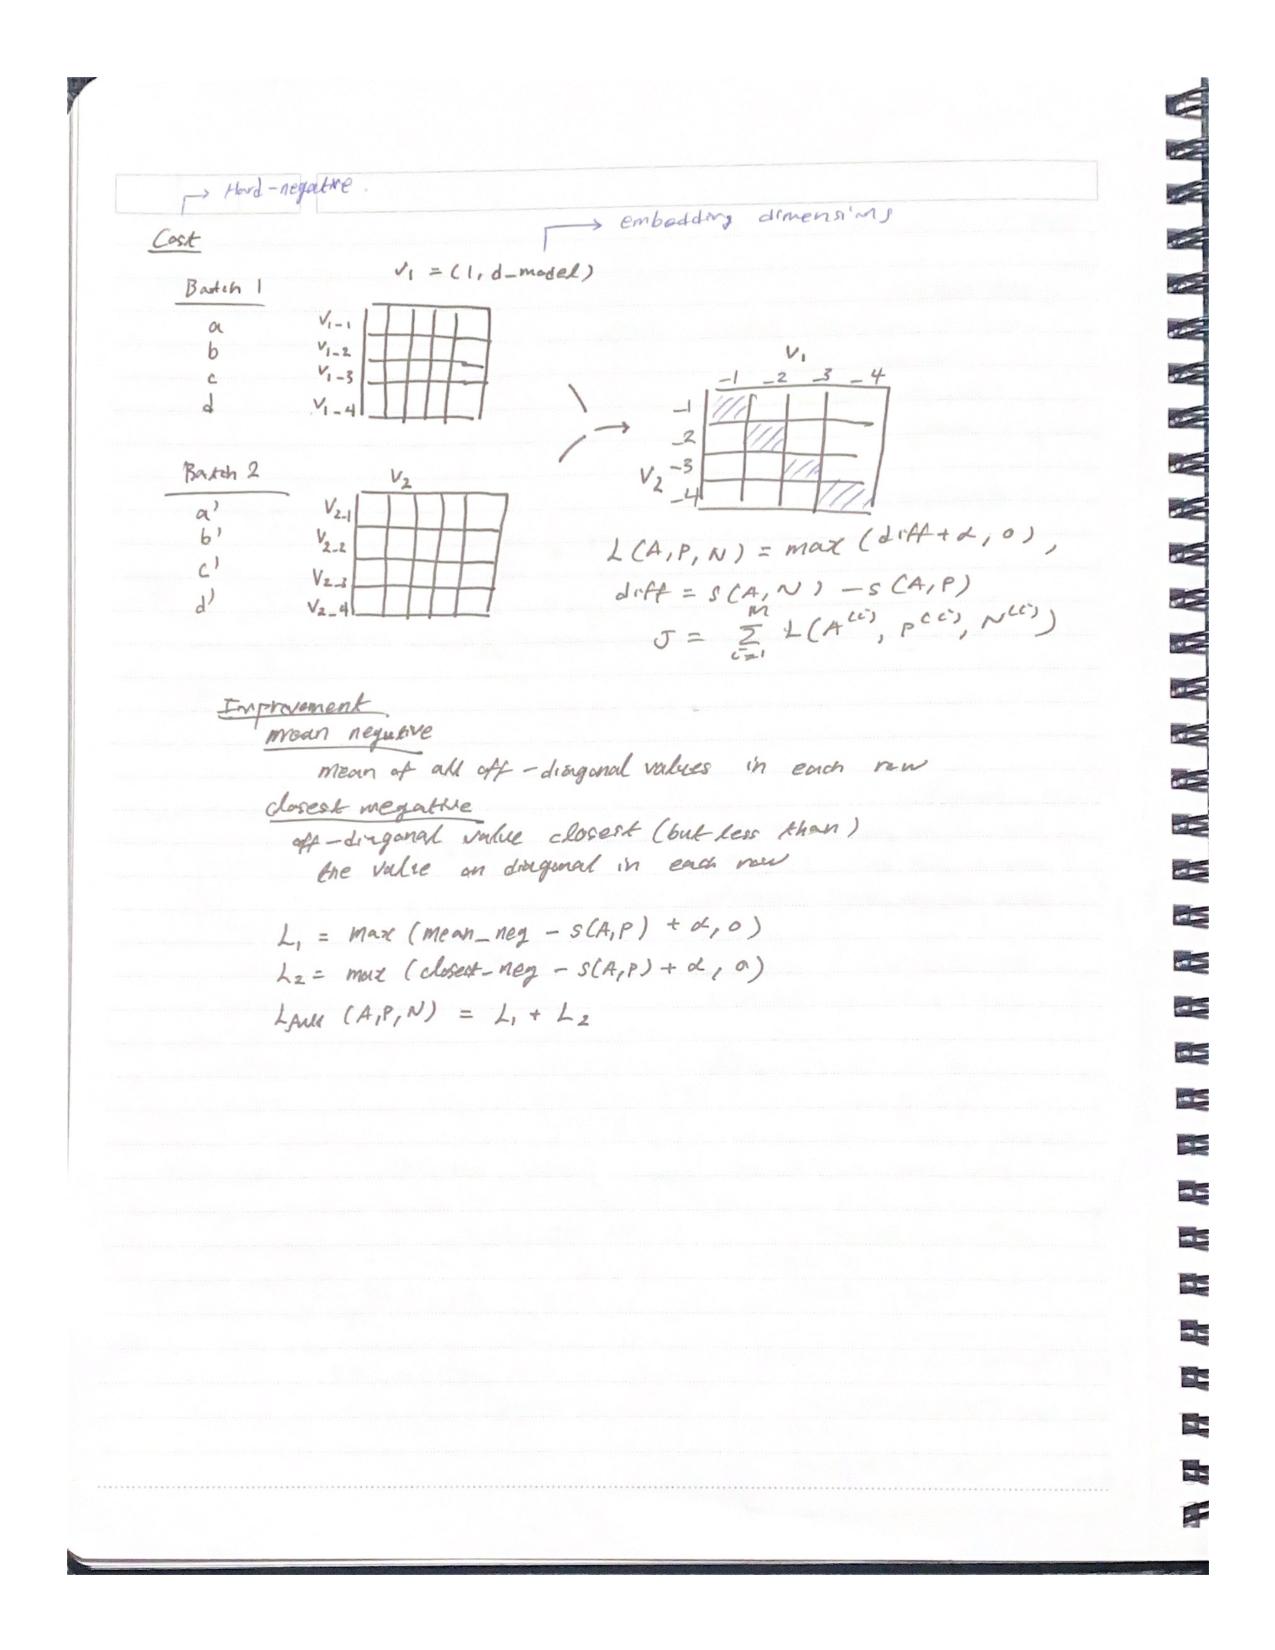 → Hard-negative.
→ embedding dimensions
Cost
V1 = (1, d_model)
Batch 1
a
b
c
d
V1-1
V1-2
V1-3
V1-4
Batch 2
a'
b'
c'
d'
V2
V2-1
V2-2
V2-3
V2-4
V1
-1 -2 -3 -4
-1
-2
V2 -3
-4
L(A,P,N) = max(diff+α, 0),
diff = s(A,N) - s(A,P)
J = Σ_{i=1}^{M} L(A^{(i)}, P^{(i)}, N^{(i)})
Improvement
mean negative
mean of all off-diagonal values in each row
closest negative
off-diagonal value closest (but less than)
the value on diagonal in each row
L1 = max (mean_neg - s(A,P) + α, 0)
L2 = max (closest-neg - s(A,P) + α, 0)
Lfull (A,P,N) = L1 + L2